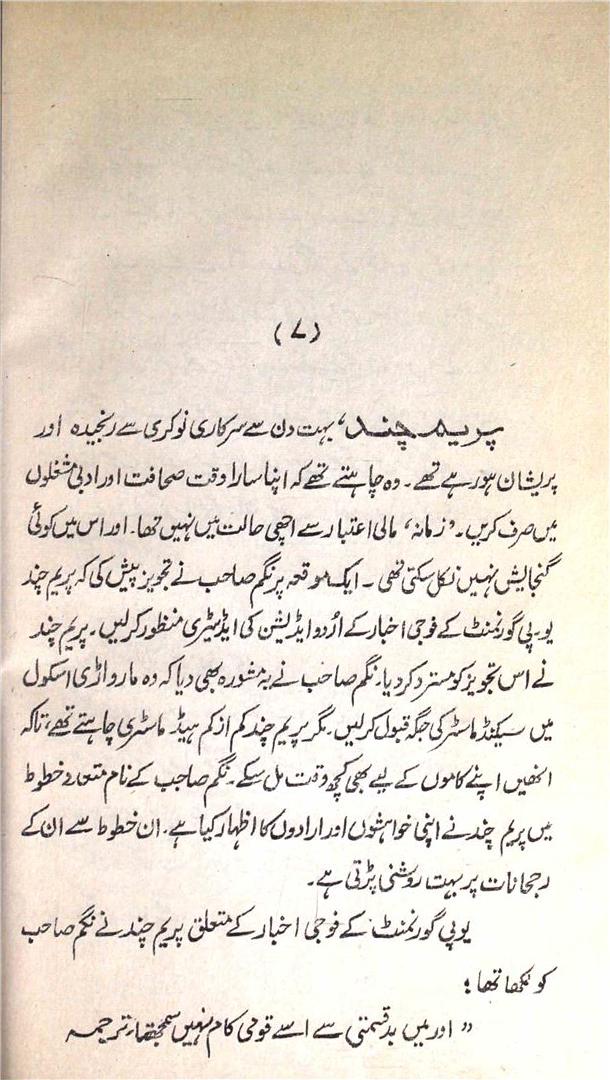 (۷)
پریم چند، بہت دن سے سرکاری نوکری سے رنجیدہ اور
پریشان ہو رہے تھے۔ وہ چاہتے تھے کہ اپنا سارا وقت صحافت اور ادبی مشغلوں
میں صرف کریں۔ ’زمانہ‘ مالی اعتبار سے اچھی حالت میں نہیں تھا۔ اور اس میں کوئی
گنجایش نہیں نکل سکتی تھی ۔ ایک موقعہ پر نگم صاحب نے تجویز پیش کی کہ پریم چند
یو۔پی گورنمنٹ کے فوجی اخبار کے اُردو ایڈیشن کی ایڈیٹری منظور کر لیں۔ پریم چند
نے اس تجویز کو مسترد کر دیا۔ نگم صاحب نے یہ مشورہ بھی دیا کہ وہ مارواڑی اسکول
میں سیکنڈ ماسٹر کی جگہ قبول کر لیں۔ مگر پریم چند کم از کم ہیڈ ماسٹری چاہتے تھے، تاکہ
انھیں اپنے کاموں کے لیے بھی کچھ وقت مل سکے۔ نگم صاحب کے نام متعدد خطوط
میں پریم چند نے اپنی خواہشوں اور ارادوں کا اظہار کیا ہے۔ ان خطوط سے ان کے
رجحانات پر بہت روشنی پڑتی ہے۔
یو پی گورنمنٹ کے فوجی اخبار کے متعلق پریم چند نے نگم صاحب
کو لکھا تھا ؛
” اور میں بدقسمتی سے اسے قومی کام نہیں سمجھتا، ترجمہ